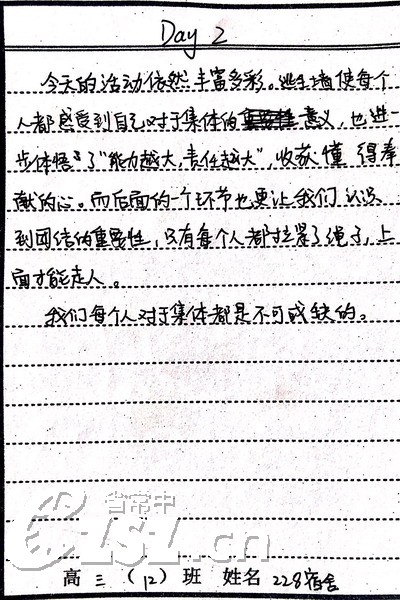 Day 2
今天的活动依然丰富多彩。逃生墙使每个
人都感受到自己对于集体的意义，也进一
步体悟了“能力越大，责任越大”，收获懂得奉
献的心。而后面的一个环节也更让我们认识
到团结的重要性，只有每个人都拉紧了绳子，上
面才能走人。
我们每个人对于集体都是不可或缺的。
省常中
51.cn
高三（12）班 姓名 228宿舍